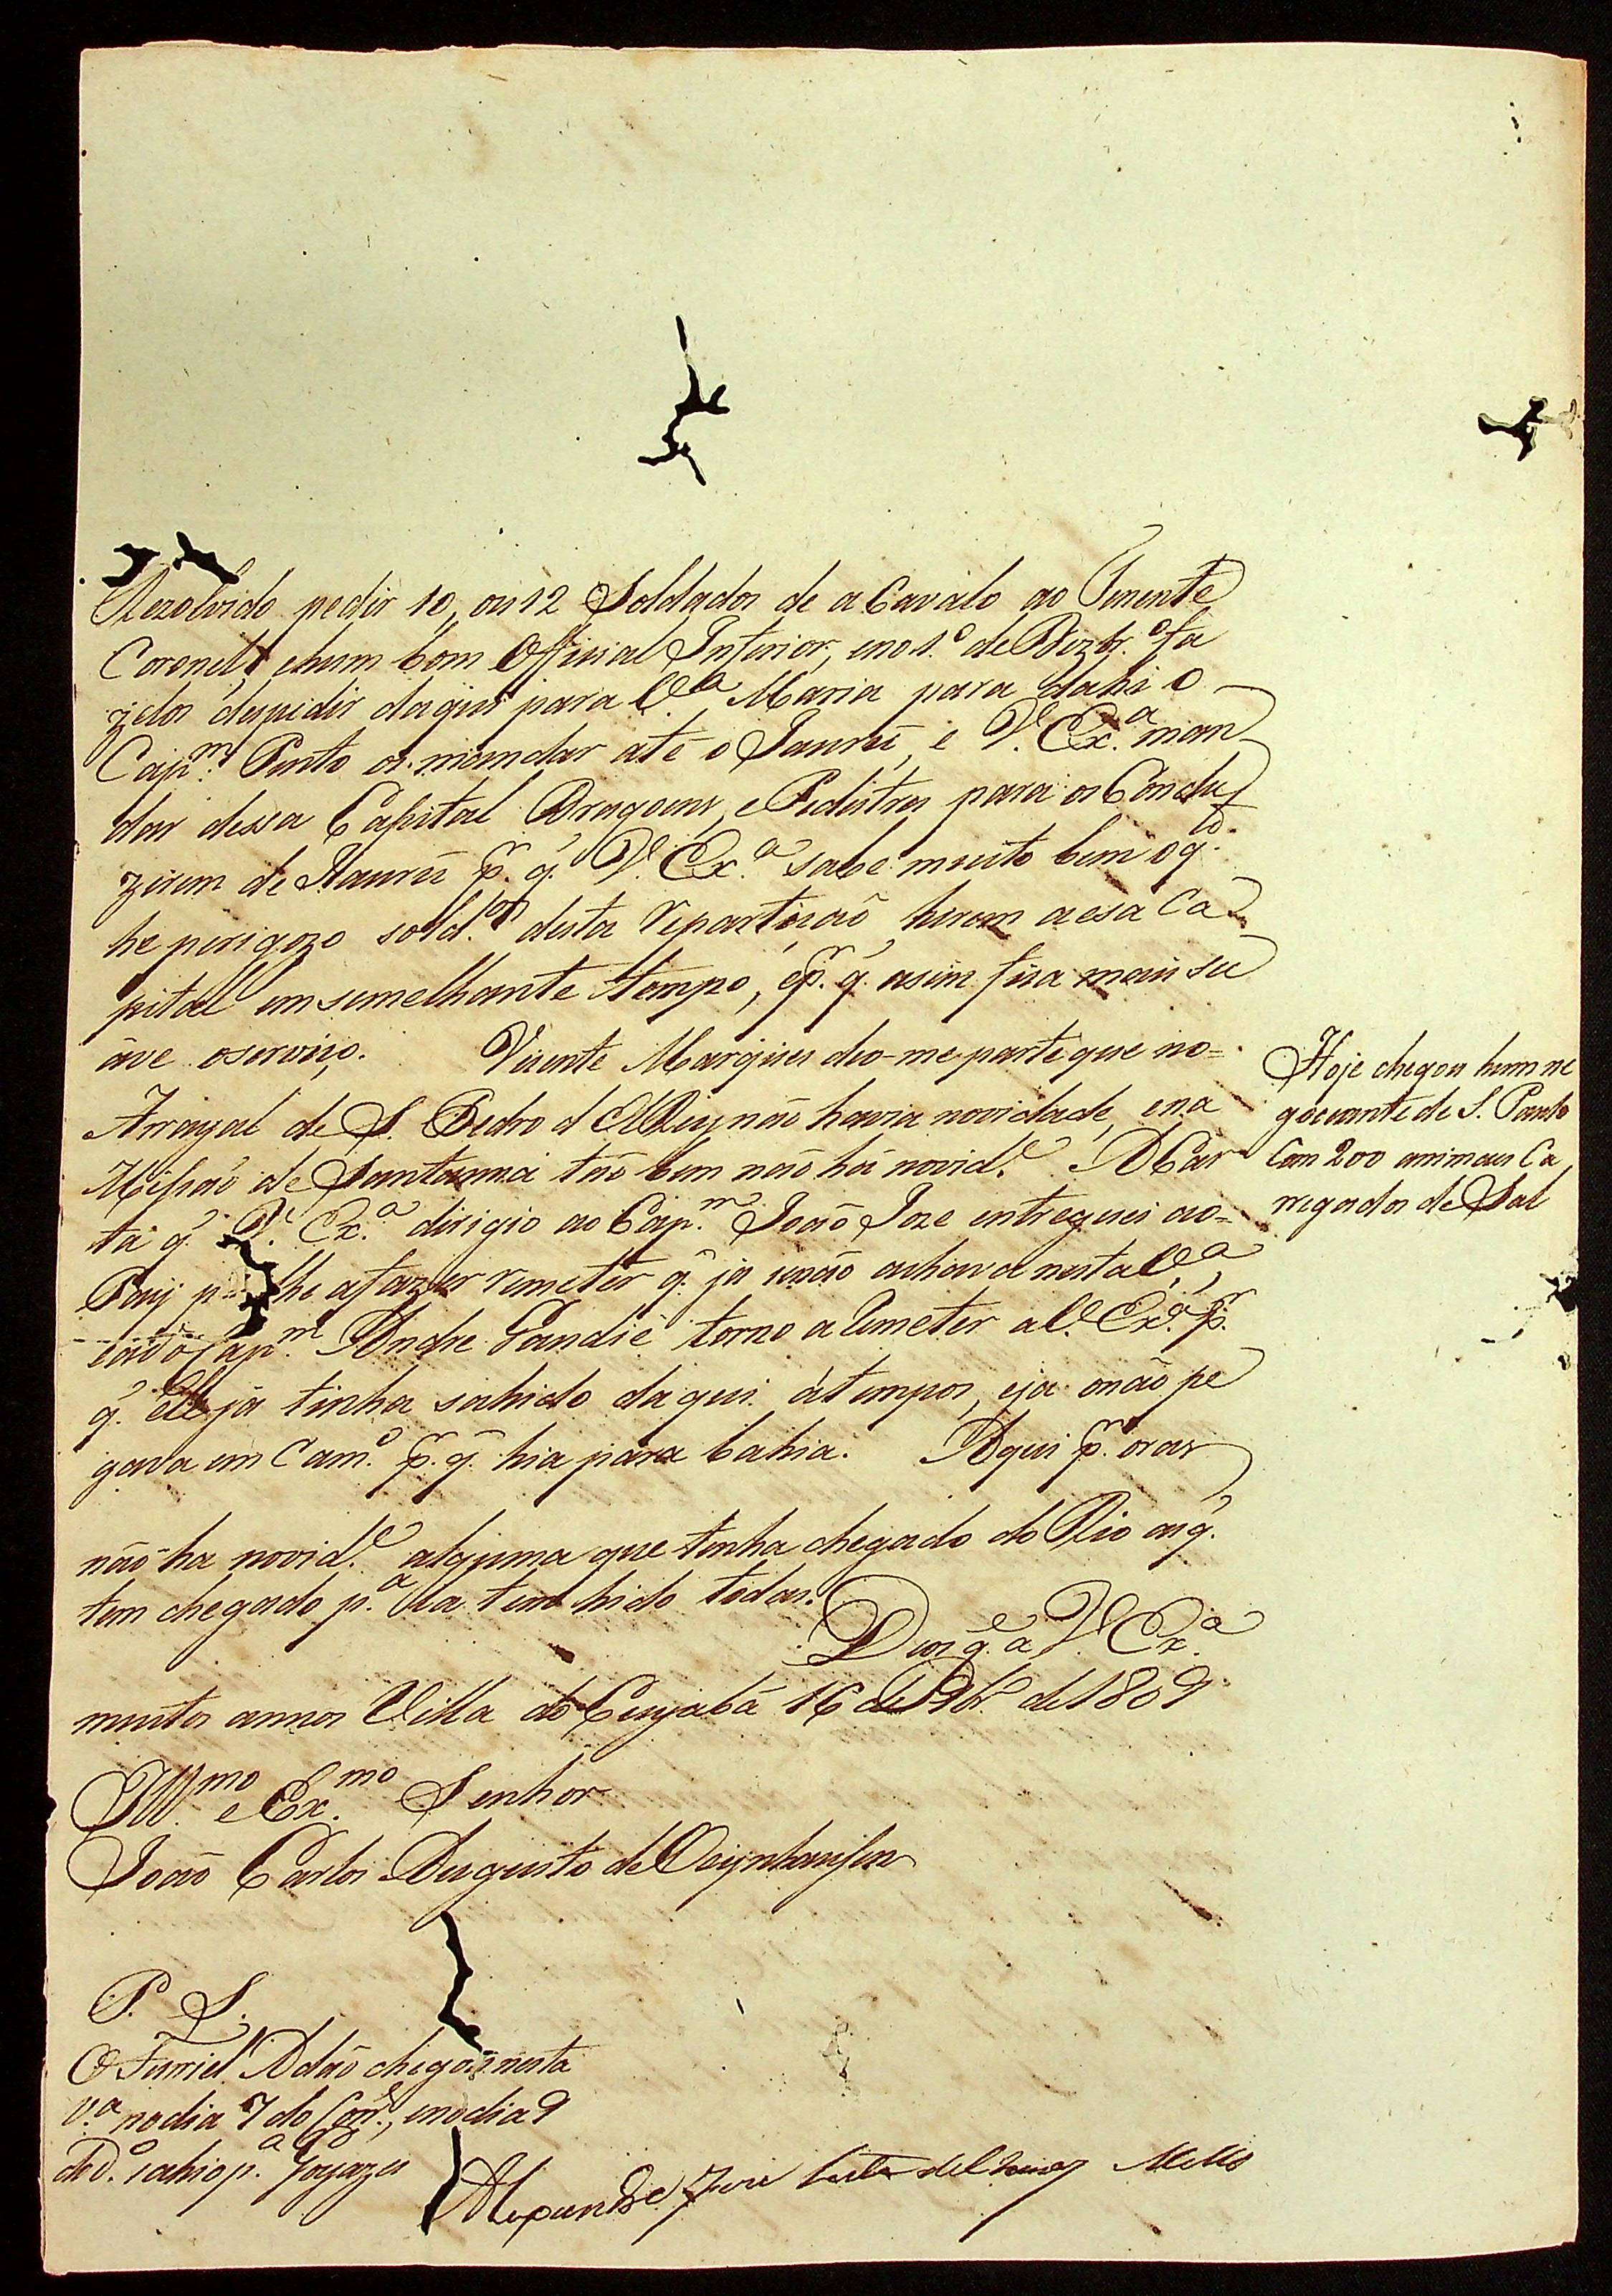 Rezolvido pedir 10, ou 12 Soldados de a Cavalo ao Tenente
Coronel, ehum bom Official Inferior, eno 1.º de Dezbr.º fa
zelos despidir daqui para V.ª Maria para dahi o
Cap.m Pinto os mandar até o Jaurú, e V. Ex.ª man
dar dessa Capital Dragoens, e Pedestres para os Condu
zirem de Jaurú p.r q. V. Ex.ª sabe muito bem oq.to
he perigozo sold.os desta repartição hirem aesa Ca
pital em semelhante tempo, ep.r q. asim fica mais su
ave oserviço. Vicente Marques deo-me parte que no=
Arrayal de S. Pedro d ElRey não havia novidade, ena
Missão de Santanna tão bem não há novid.e A Car
ta q. V. Ex.ª dirigio ao Cap.m João Joze entreguei ao=
Pay p lhe afazer remeter q. ja senão achava nesta V.ª,
Cap.m Andre torno a remeter a V. Ex.ª p.r
q. Elle ja tinha sahido daqui átempos, eja onão pe
gava em Cam.º p.r q. hia para bahia. Aqui p.r oras
não ha novid.e alguma que tenha chegado do Rio asq.
tem chegado p.ª la tem hido todas.
Deos g.e a V. Ex.ª
muitos annos Villa do Cuyabá 16 de 9br.º de 1809
Ill.mo e Ex.mo Senhor
João Carlos Augusto de Oeynhausen
Hoje chegou hum ne
gociante de S. Paulo
Com 200 animaes Ca
rregados de Sal
P. S.
O Furriel Adão chegou nesta
V.ª nodia 7 do Corr.e, enodia 9
do d.º sahio p.ª Goyazes
Alexandre Joze Leite de Chaves Mello